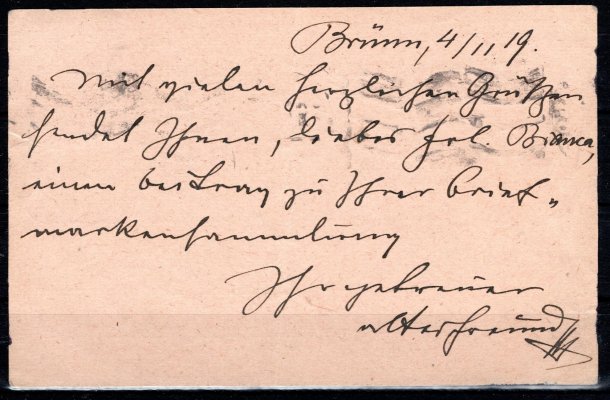 Brünn, 4/11 19.
Mit vielen herzlichen Grüßen
sendet Ihnen, liebes Frl. Bianca,
einen beitrag zu Ihrer brief„
markensammlung
Ihr getreuer
alter freund